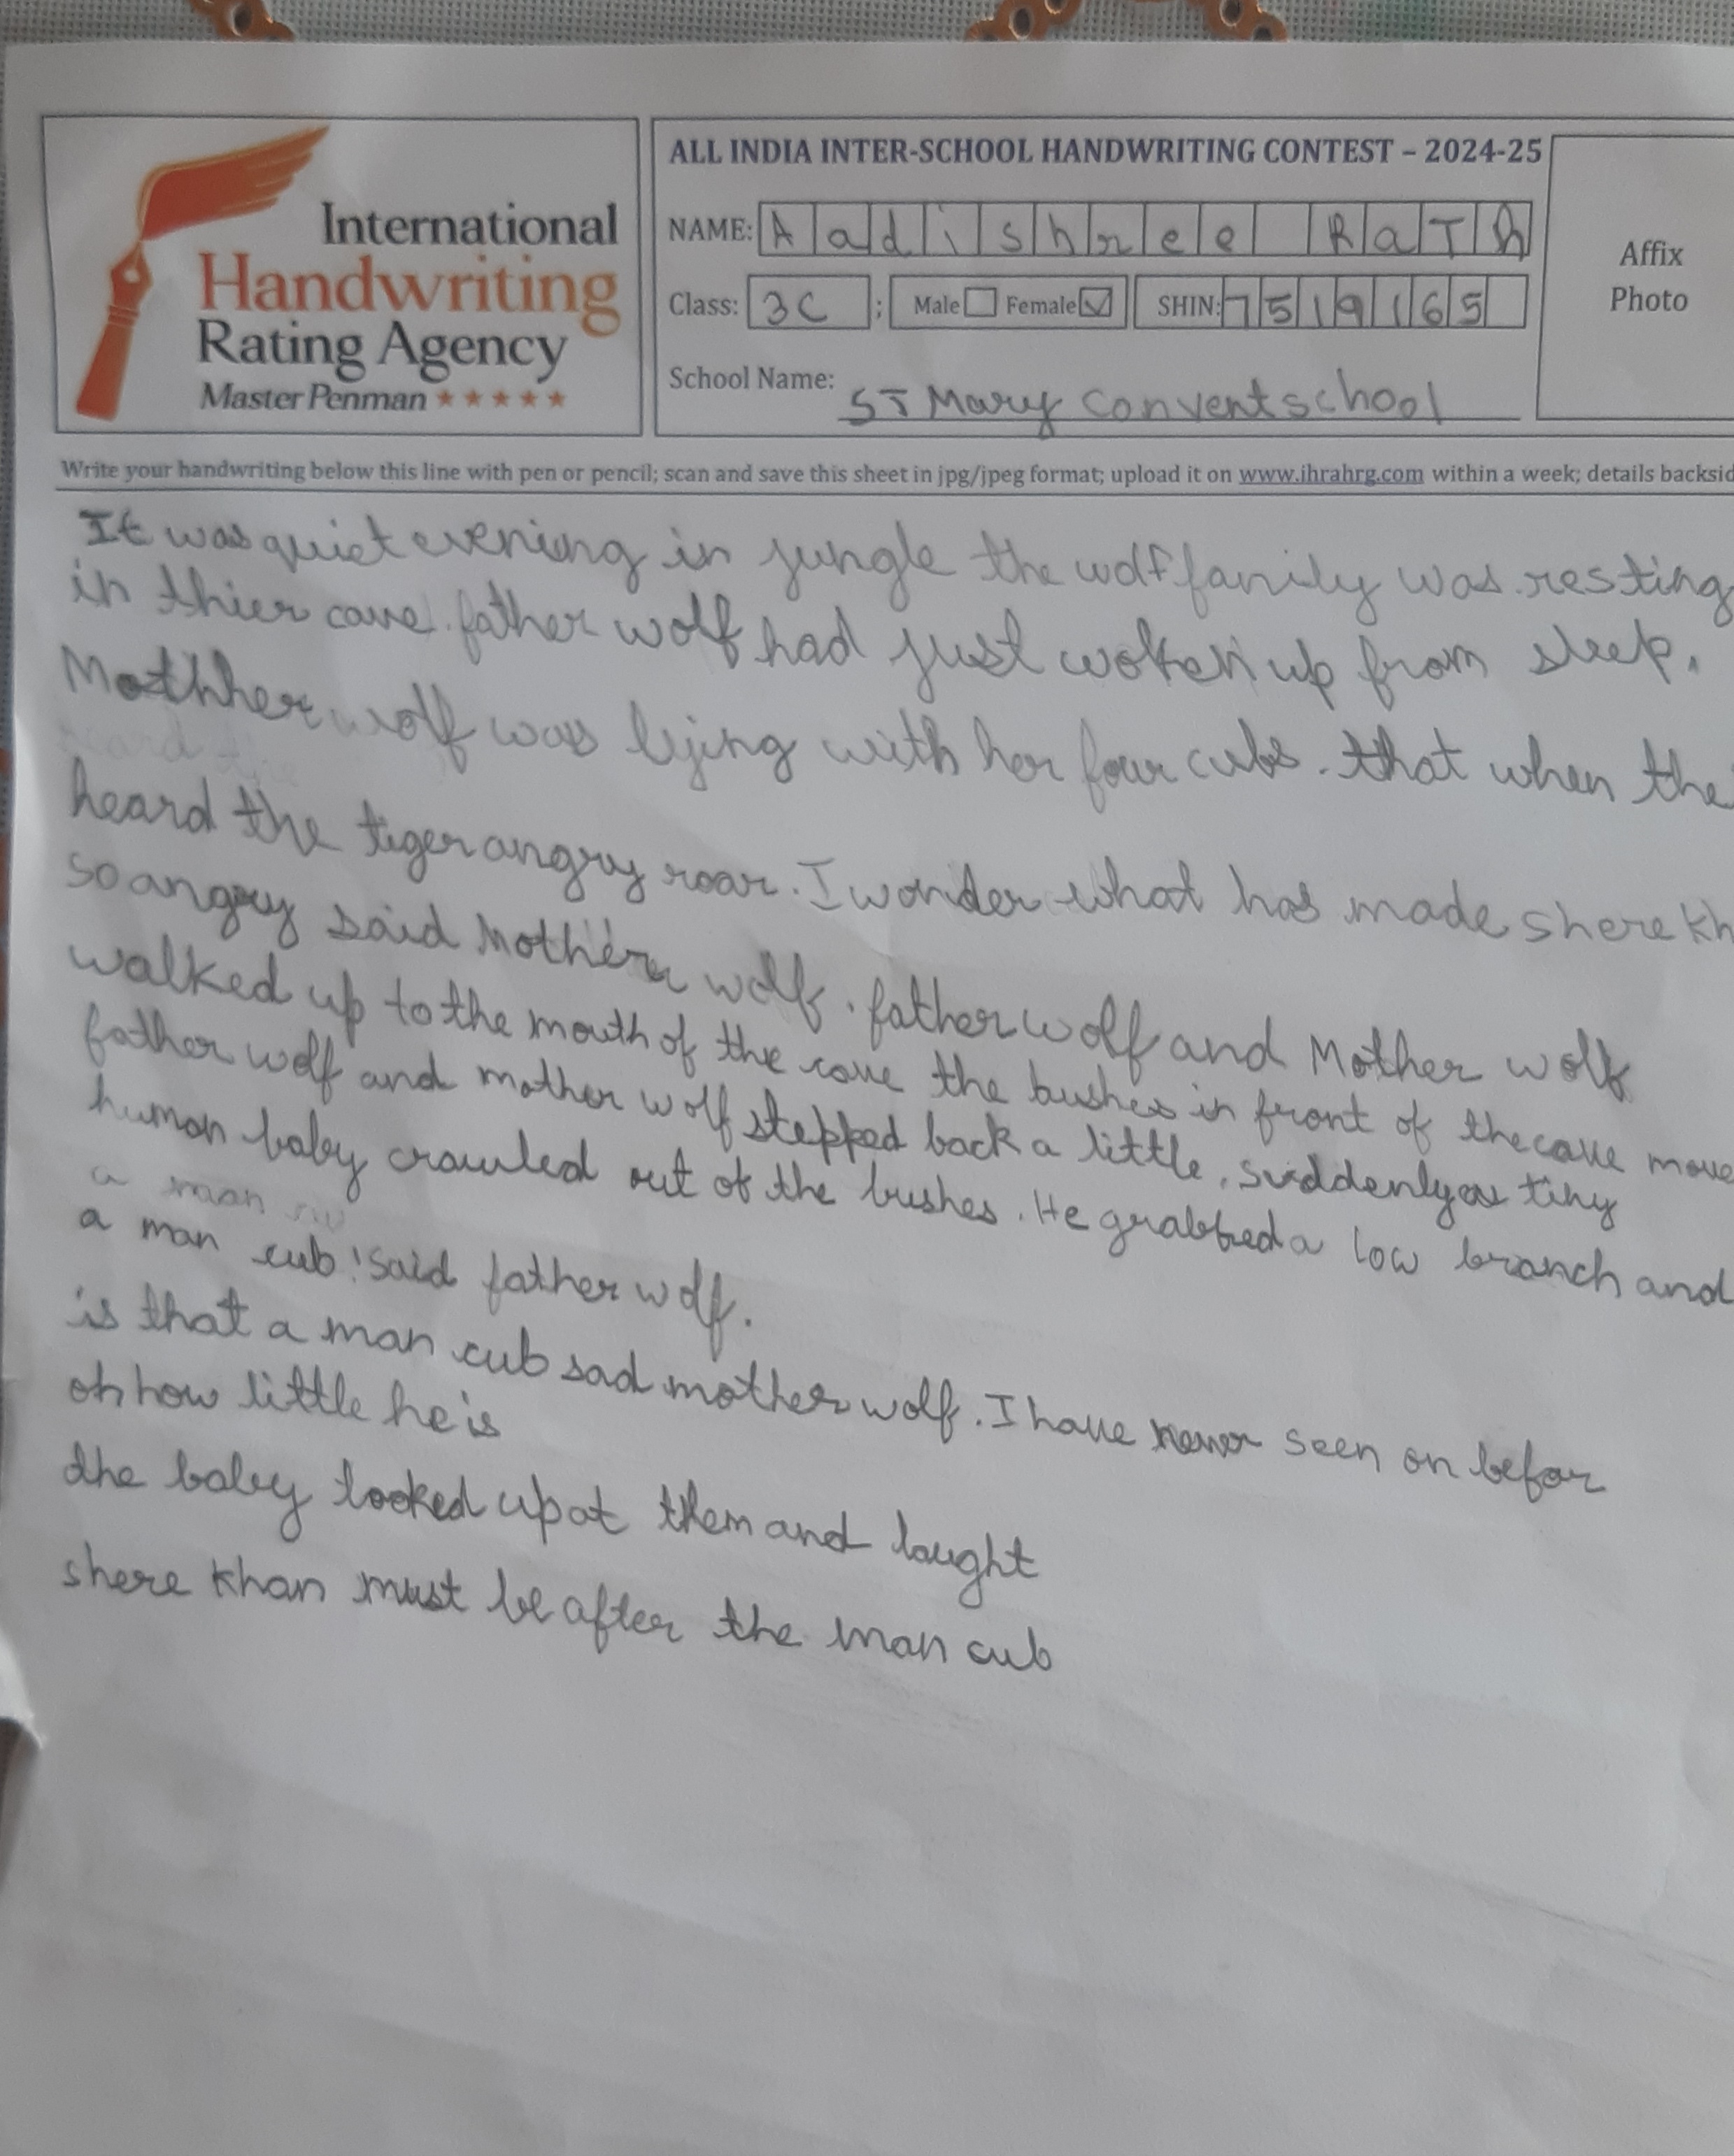 International
Handwriting
Rating Agency
Master Penman
ALL INDIA INTER-SCHOOL HANDWRITING CONTEST – 2024-25
NAME: Aadishree RaTh
Class: 3C ; Male Female SHIN: 7519165
School Name: ST Mary convent school
Affix
Photo
Write your handwriting below this line with pen or pencil; scan and save this sheet in jpg/jpeg format; upload it on www.ihrahrg.com within a week; details backsid
It was quiet evening in jungle the wolf family was resting
in thier cave. father wolf had just woken up from sleep.
Mothher wolf was lying with her four cubs. that when the
heard the tiger angry roar. I wonder what has made shere kh
so angry said Mother wolf. father wolf and Mother wolf
walked up to the mouth of the cave the bushes in front of the cave move
father wolf and mother wolf stepped back a little. suddenly a tiny
human baby crawled out of the bushes. He grabbed a low branch and
a man cub! said father wolf.
is that a man cub sad mother wolf. I have never seen on befor
oh how little he is
the baby looked up at them and laught
shere khan must be after the man cub